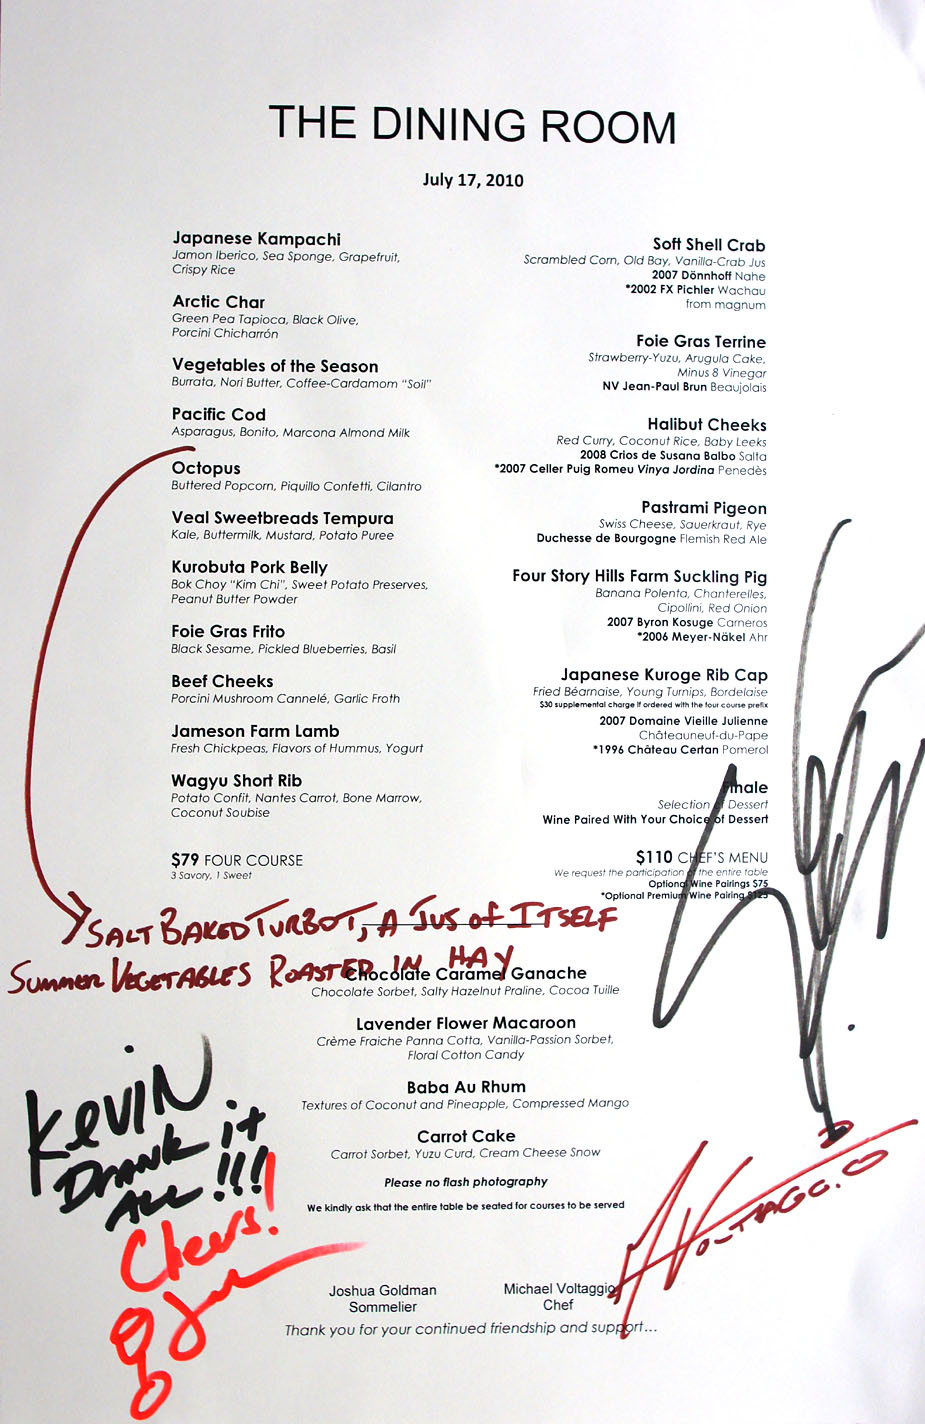 THE DINING ROOM
July 17, 2010
Japanese Kampachi
Jamon Iberico, Sea Sponge, Grapefruit,
Crispy Rice
Arctic Char
Green Pea Tapioca, Black Olive,
Porcini Chicharrón
Vegetables of the Season
Burrata, Nori Butter, Coffee-Cardamom “Soil”
Pacific Cod
Asparagus, Bonito, Marcona Almond Milk
Octopus
Buttered Popcorn, Piquillo Confetti, Cilantro
Veal Sweetbreads Tempura
Kale, Buttermilk, Mustard, Potato Puree
Kurobuta Pork Belly
Bok Choy “Kim Chi”, Sweet Potato Preserves,
Peanut Butter Powder
Foie Gras Frito
Black Sesame, Pickled Blueberries, Basil
Beef Cheeks
Porcini Mushroom Cannelé, Garlic Froth
Jameson Farm Lamb
Fresh Chickpeas, Flavors of Hummus, Yogurt
Wagyu Short Rib
Potato Confit, Nantes Carrot, Bone Marrow,
Coconut Soubise
$79 FOUR COURSE
3 Savory, 1 Sweet
Soft Shell Crab
Scrambled Corn, Old Bay, Vanilla-Crab Jus
2007 Dönnhoff Nahe
*2002 FX Pichler Wachau
from magnum
Foie Gras Terrine
Strawberry-Yuzu, Arugula Cake,
Minus 8 Vinegar
NV Jean-Paul Brun Beaujolais
Halibut Cheeks
Red Curry, Coconut Rice, Baby Leeks
2008 Crios de Susana Balbo Salta
*2007 Celler Puig Romeu Vinya Jordina Penedès
Pastrami Pigeon
Swiss Cheese, Sauerkraut, Rye
Duchesse de Bourgogne Flemish Red Ale
Four Story Hills Farm Suckling Pig
Banana Polenta, Chanterelles,
Cipollini, Red Onion
2007 Byron Kosuge Carneros
*2006 Meyer-Näkel Ahr
Japanese Kuroge Rib Cap
Fried Béarnaise, Young Turnips, Bordelaise
$30 supplemental charge if ordered with the four course prefix
2007 Domaine Vieille Julienne
Châteauneuf-du-Pape
*1996 Château Certan Pomerol
Finale
Selection of Dessert
Wine Paired With Your Choice of Dessert
$110 CHEF'S MENU
We request the participation of the entire table
Optional Wine Pairings $75
*Optional Premium Wine Pairing $125
SALT BAKED TURBOT, A JUS OF ITSELF
SUMMER VEGETABLES ROASTED IN HAY
Chocolate Caramel Ganache
Chocolate Sorbet, Salty Hazelnut Praline, Cocoa Tuille
Lavender Flower Macaroon
Crème Fraiche Panna Cotta, Vanilla-Passion Sorbet,
Floral Cotton Candy
Baba Au Rhum
Textures of Coconut and Pineapple, Compressed Mango
Carrot Cake
Carrot Sorbet, Yuzu Curd, Cream Cheese Snow
Please no flash photography
We kindly ask that the entire table be seated for courses to be served
KEVIN
DRANK it
ALL!!!
Cheers!
Joshua Goldman
Sommelier
Michael Voltaggio
Chef
Thank you for your continued friendship and support...